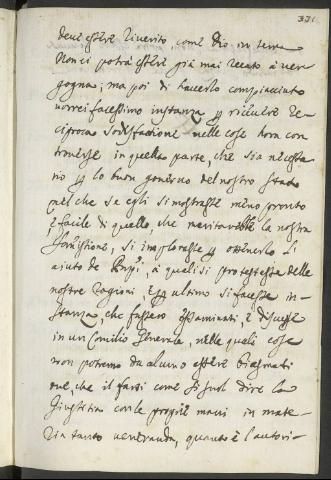 331
deve essere riverito, come Dio in terra
Non ci potrà essere già mai recato à ver
gogna; ma poi di haverlo compiacciuto
vorrei facessimo instanza p ricevere re-
ciproca sodisfazione nelle cose hora con
troverse in quella parte, che sia necessa
rio p lo buon governo del nostro stato
nel che se egli si mostrasse meno pronto
è facile di quello, che meritarebbe la nostra
sommissione, si implorasse p ottenerlo l'
ajuto de, à quali si protestasse delle
nostre ragioni è p ultimo si facesse in-
stanza, che fussero essaminati, è discusse
in un Concilio Generale, nelle quali cose
non potremo da alcuno essere biasmati
ove, che il farsi come si suol dire la
Giustitia con le proprie mani in mate-
ria tanto veneranda, quanto è l'autori-